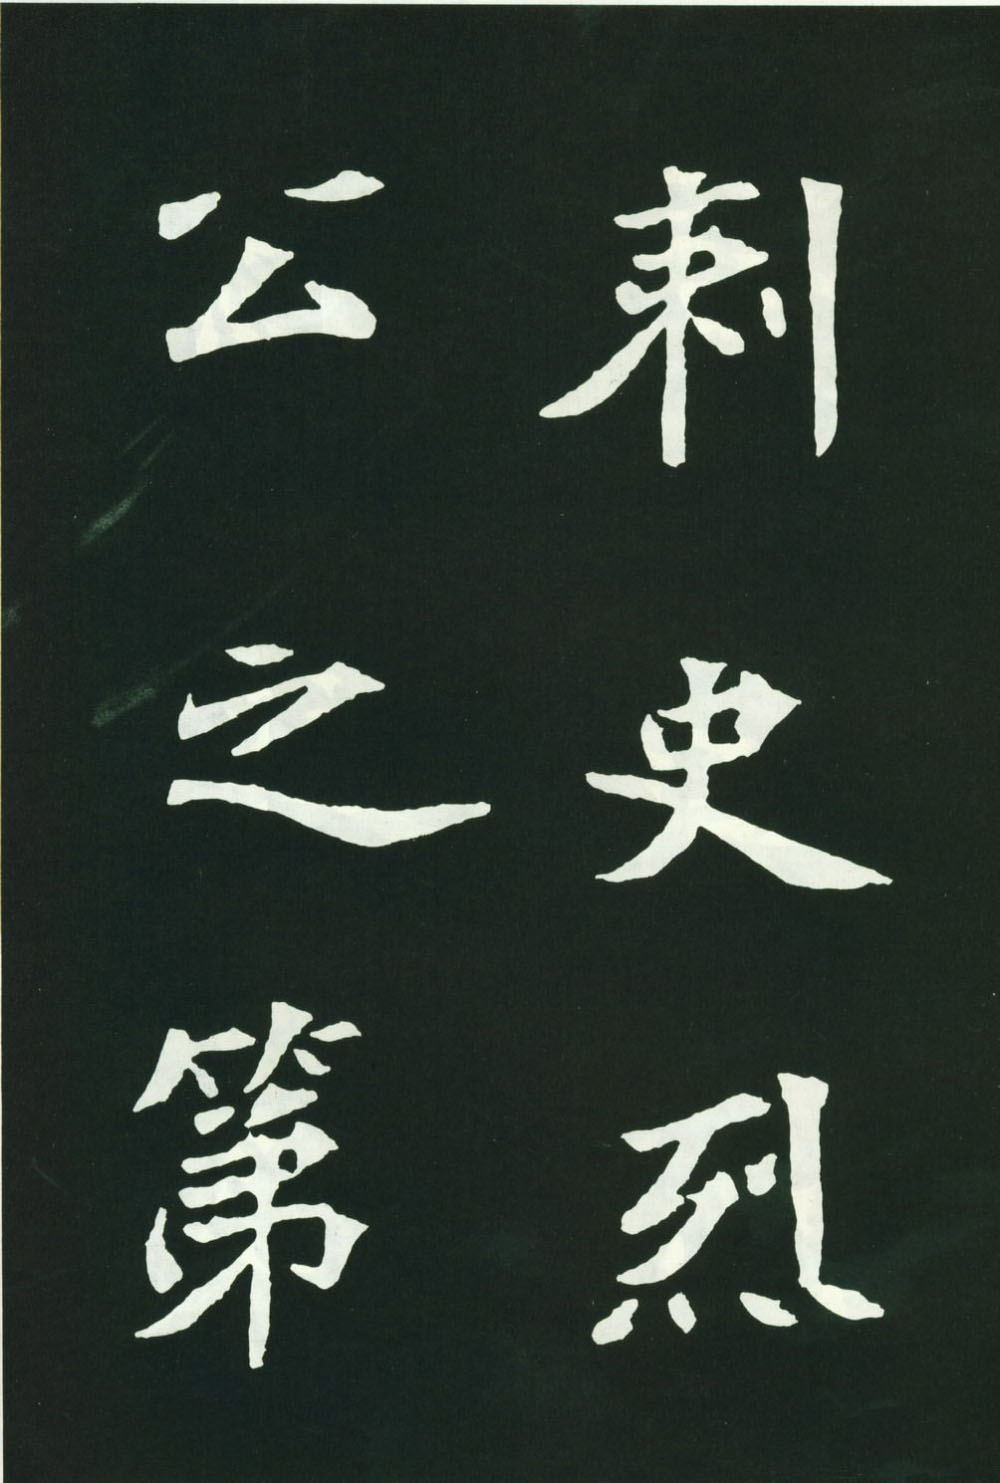 刺史烈
公之第